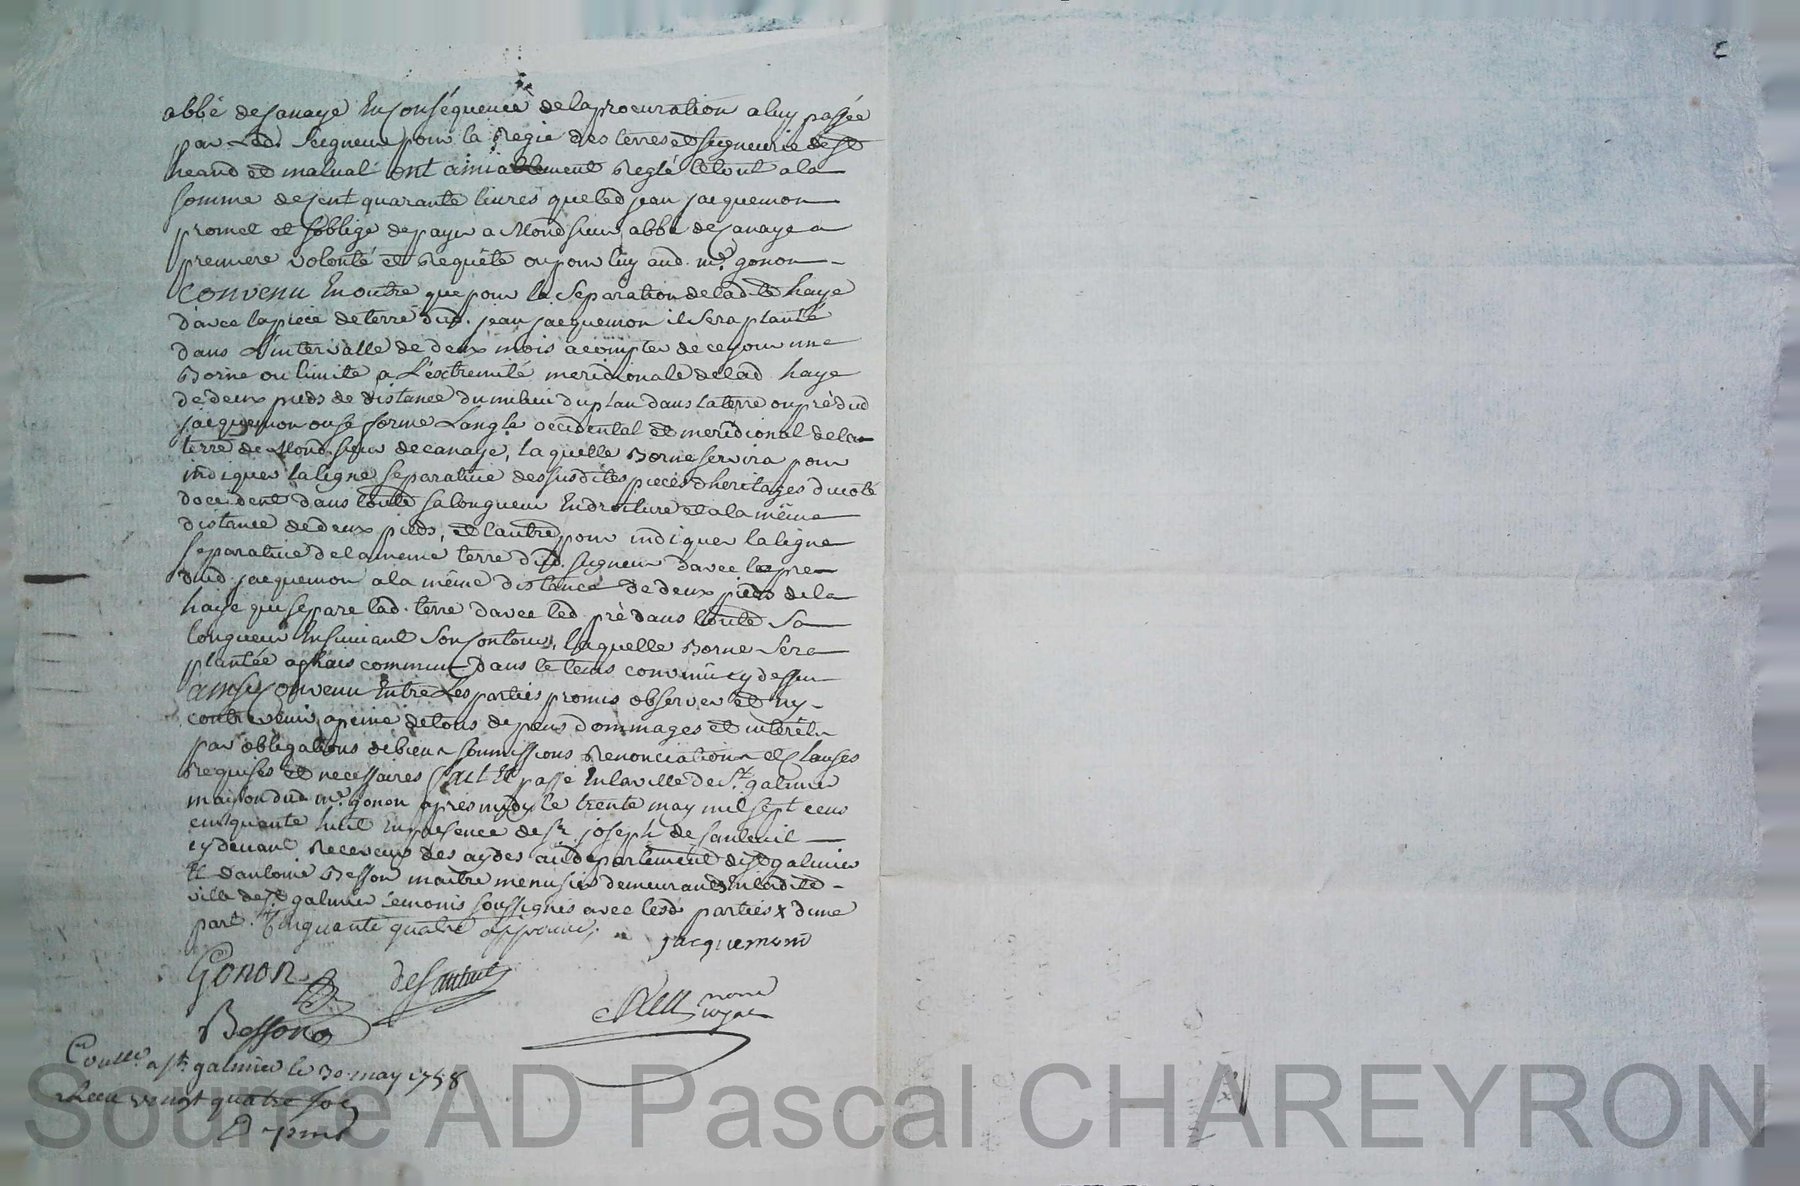 abbé de Canaye En Conséquence de la procuration a luy passée
par Led. Seigneur pour la Regie des terres et seigneurie de St
heand et malval ont amiablement Reglé le tout a la
somme de Cent quarante livres que led jean jacquemon
promet et soblige de payer a Mond sieur abbé de Canaye a
premiere volonté et Requête ou pour luy aud. me. gonon
Convenu En outre que pour la Separation de lad te haye
d'avec la piece de terre dud. jean jacquemon il sera planté
dans L'intervalle de deux mois a compter de ce jour une
Borne ou limite a L'extremité meridionale de lad. haye
de deux pieds de distance du milieu du plan dans la terre ou pré dud
jacquemon ou se forme Langle occidental et meridional de la
terre de Mond sieur de canaye, laquelle Borne servira pour
indiquer la ligne separative des susdites pieces dheritages du coté
doccident dans toute sa longueur En droiture et a la même
distance de deux pieds, et lautre pour indiquer la ligne
separative de la meme terre dud. seigneur davec le pre
dud. jacquemon a la même distance de deux pieds de la
haye qui separe lad. terre davec led. pré dans toute Sa
longueur En suivant Son Contour, laquelle Borne Sera
plantée a frais communs dans le tems convenu cy dessus
ainsy Convenu Entre Les parties promis observer et ny
contrevenir a peine de tous depens dommages et interêts
par obligations de biens soumissions Renonciations et Clauses
Requises et necessaires fait Et passé En la ville de St. galmier
maison dud me. gonon apres midy le trente may mil sept cens
cinquante huit En presence de sr. joseph de Santeuil
cy devant Receveur des aydes au departement de St galmier
Et d'antoine Besson maitre menusier demeurants En lad ite
ville de St galmier temoins soussignés avec lesd. parties x dune
part. Cinquante quatre approuvé,
jacquemon
Gonon
deSanteuil
Besson
Contlé. a St. galmier le 30 may 1758
Recu vingt quatre sols
Source AD Pascal CHAREYRON